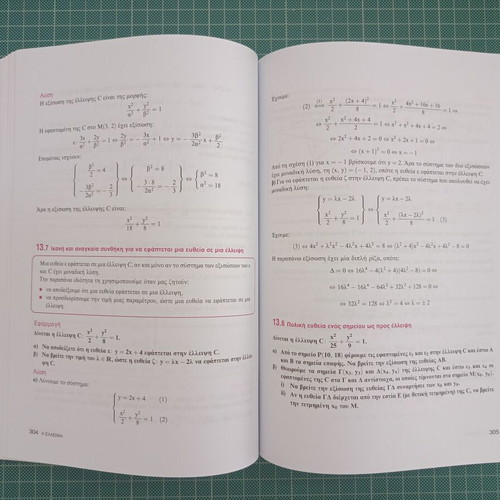 Λύση
Η εξίσωση της έλλειψης C είναι της μορφής:
x²/α² + y²/β² = 1
Η εφαπτομένη της C στο M(3, 2) έχει εξίσωση:
ε: 3x/α² + 2y/β² = 1 ⇔ 2y/β² = -3x/α² + 1 ⇔ y = -3β²/2α² x + β²/2
Επομένως ισχύουν:
{ β²/2 = 4, -3β²/2α² = -2/3 } ⇔ { β² = 8, -3·8/2α² = -2/3 } ⇔ { β² = 8, α² = 18 }
Άρα η εξίσωση της έλλειψης C είναι:
x²/18 + y²/8 = 1
13.7 Ικανή και αναγκαία συνθήκη για να εφάπτεται μια ευθεία σε μια έλλειψη
Μια ευθεία ε εφάπτεται σε μια έλλειψη C, αν και μόνο αν το σύστημα των εξισώσεων των ε
και C έχει μοναδική λύση.
Την παραπάνω ιδιότητα τη χρησιμοποιούμε όταν μας ζητούν:
• να αποδείξουμε ότι μια ευθεία εφάπτεται σε μια έλλειψη,
• να προσδιορίσουμε την τιμή μιας παραμέτρου, ώστε μια ευθεία να εφάπτεται σε μια
έλλειψη.
Εφαρμογή
Δίνεται η έλλειψη C: x²/2 + y²/8 = 1.
α) Να αποδείξετε ότι η ευθεία ε: y = 2x + 4 εφάπτεται στην έλλειψη C.
β) Να βρείτε την τιμή του λ ∈ ℝ, ώστε η ευθεία ζ: y = λx – 2λ να εφάπτεται στην έλλει-
ψη C.
Λύση
α) Λύνουμε το σύστημα:
{ y = 2x + 4 (1)
x²/2 + y²/8 = 1 (2)
304 Η ΕΛΛΕΙΨΗ
Έχουμε:
(2) ⇔(1) x²/2 + (2x + 4)²/8 = 1 ⇔ x²/2 + 4x² + 16x + 16/8 = 1 ⇔
⇔ x²/2 + x² + 4x + 4/2 = 1 ⇔ x² + x² + 4x + 4 = 2 ⇔
⇔ 2x² + 4x + 2 = 0 ⇔ x² + 2x + 1 = 0 ⇔
⇔ (x + 1)² = 0 ⇔ x = –1
Από τη σχέση (1) για x = –1 βρίσκουμε ότι y = 2. Άρα το σύστημα των δύο εξισώσεων
έχει μοναδική λύση, τη (x, y) = (–1, 2), οπότε η ευθεία ε εφάπτεται στην έλλειψη C.
β) Για να εφάπτεται η ευθεία ζ στην έλλειψη C, πρέπει το σύστημα που ακολουθεί να έχει
μοναδική λύση:
{ y = λx – 2λ, x²/2 + y²/8 = 1 } ⇔ { y = λx – 2λ, x²/2 + (λx – 2λ)²/8 = 1 (3)
Έχουμε:
(3) ⇔ 4x² + λ²x² – 4λ²x + 4λ² = 8 ⇔ (λ² + 4)x² – 4λ²x + 4λ² – 8 = 0
Η παραπάνω εξίσωση έχει μία διπλή ρίζα, οπότε:
Δ = 0 ⇔ 16λ⁴ – 4(λ² + 4)(4λ² – 8) = 0 ⇔
⇔ 16λ⁴ – 16λ⁴ – 64λ² + 32λ² + 128 = 0 ⇔
⇔ 32λ² = 128 ⇔ λ² = 4 ⇔ λ = ± 2
13.8 Πολική ευθεία ενός σημείου ως προς έλλειψη
Δίνεται η έλλειψη C: x²/25 + y²/9 = 1.
α) Από το σημείο P(10, 18) φέρουμε τις εφαπτομένες ε₁ και ε₂ στην έλλειψη C και έστω
Α και Β τα σημεία επαφής. Να βρείτε την εξίσωση της ευθείας ΑΒ.
β) Θεωρούμε τα σημεία Γ(x₃, y₃) και Δ(x₄, y₄) της έλλειψης C και έστω ε₃ και ε₄ οι
εφαπτομένες της C στα Γ και Δ αντίστοιχα, οι οποίες τέμνονται στο σημείο M(x₀, y₀).
i) Να βρείτε την εξίσωση της ευθείας ΓΔ συναρτήσει των x₀ και y₀.
ii) Αν η ευθεία ΓΔ διέρχεται από την εστία Ε (με θετική τετμημένη) της C, να βρείτε
την τετμημένη x₀ του Μ.
305